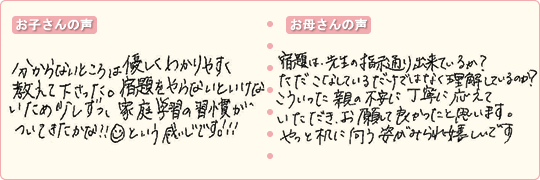 お子さんの声
分からないところは優しくわかりやすく
教えて下さった。宿題をやらないといけな
いため少しずつ、家庭学習の習慣が
ついてきたかな!!☺という感じです!!!
お母さんの声
宿題は、先生の指示通り出来ているか?
ただこなしているだけではなく理解しているのか?
こういった親の不安に丁寧に応えて
いただき、お願して良かったと思います。
やっと机に向う姿がみられ嬉しいです